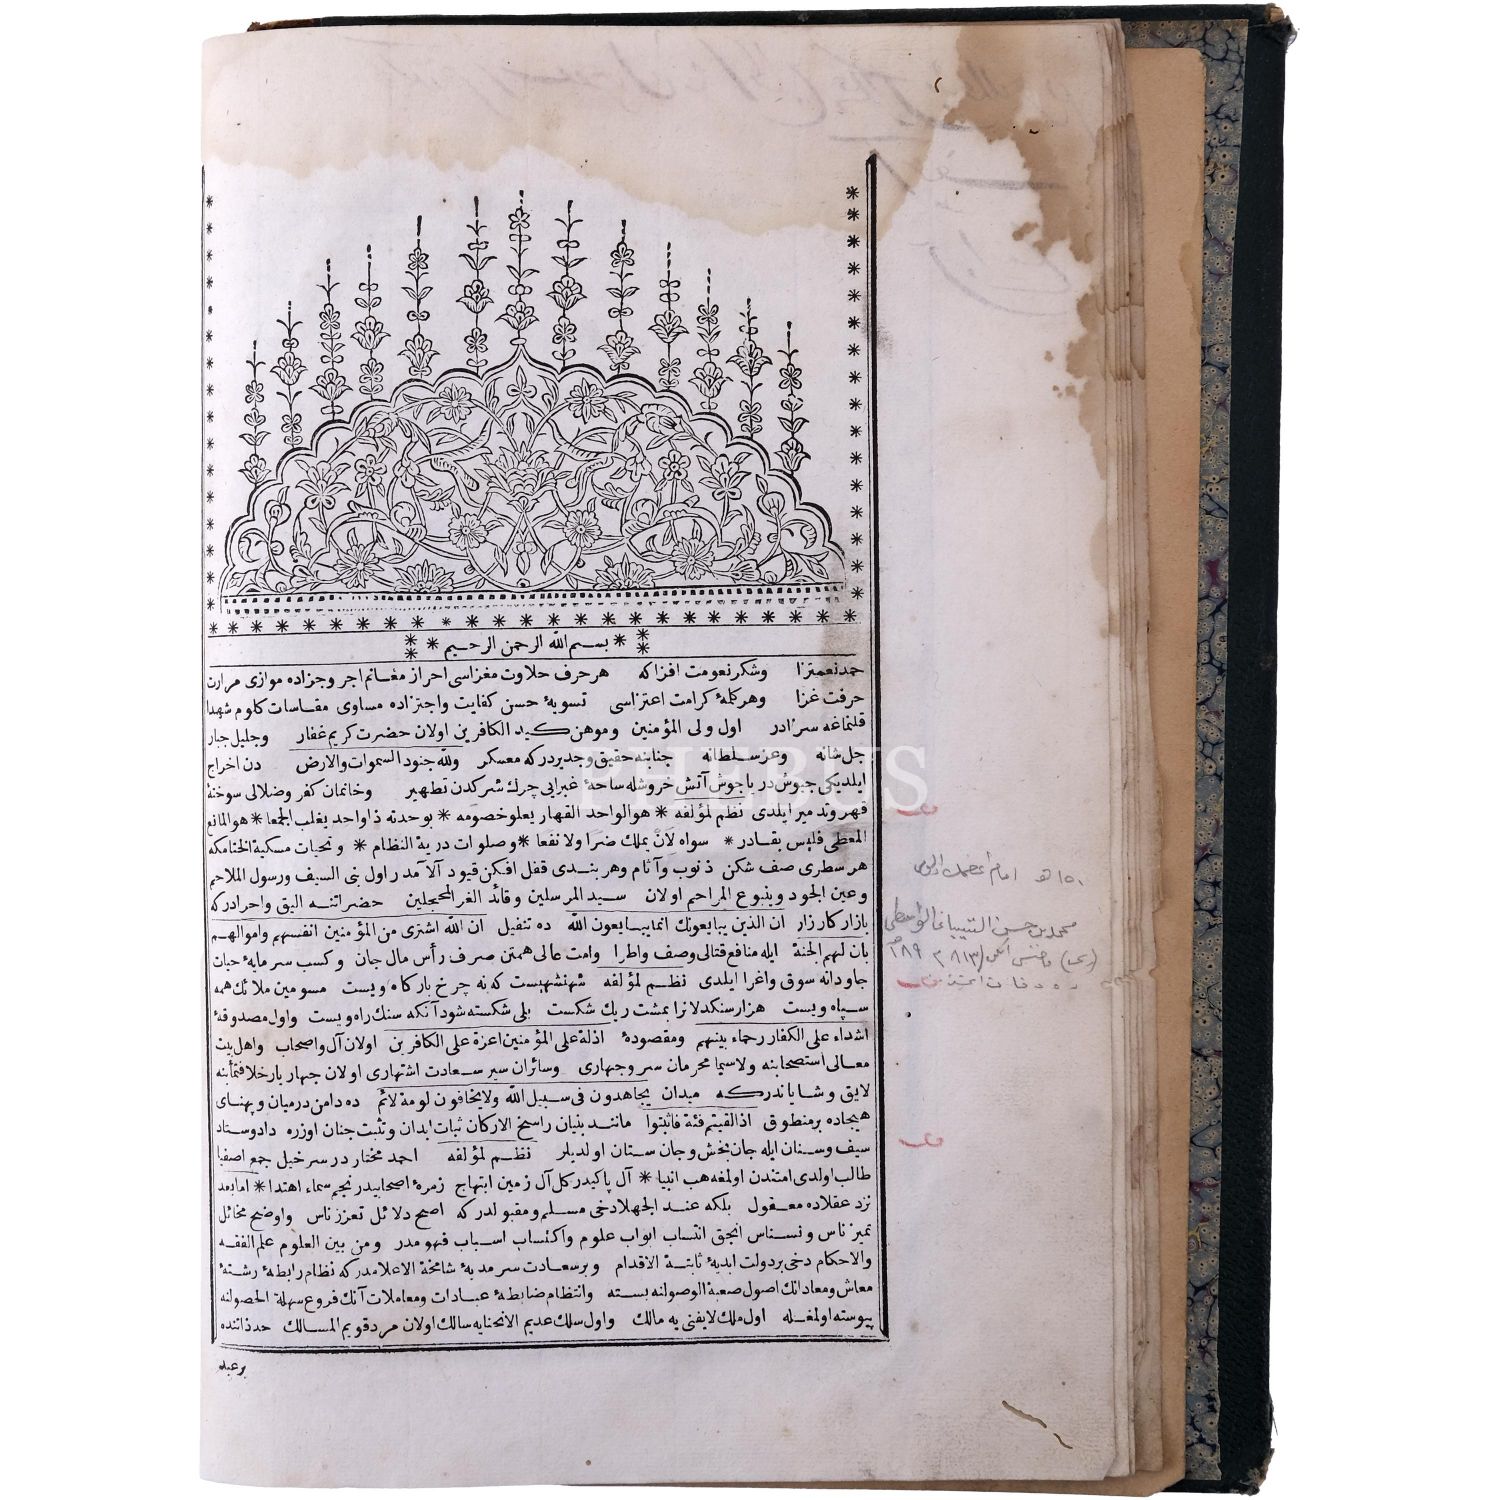 بسم الله الرحمن الرحيم
حمد نعمتزا وشكر نعومت افزا كه هر حرف حلاوت مغزاسى احراز مغانم اجر وجزاده موازى مرارت
حرفت غزا وهر كلمهٔ كرامت اعتزاسى تسويهٔ حسن كفايت واجتزاده مساوى مقاسات كلوم شهدا
قلنماغه سزادر اول ولى المؤمنين وموهن كيد الكافرين اولان حضرت كريم غفار وجليل جبار
جل شانه وعز سلطانه جنابنه حقيق وجديردركه معسكر ولله جنود السموات والارض دن اخراج
ايلديكى جيوش درياجوش آتش خروشله ساحهٔ غبرايى چرك شركدن تطهير وخانمان كفر وضلالى سوختهٔ
قهر وتدمير ايلدى نظم لمؤلفه * هو الواحد القهار يعلو خصومه * بوحدته ذا واحد يغلب الجمعا * هو المانع
المعطى فليس بقادر * سواه لأن يملك ضرا ولا نفعا * وصلوات درية النظام * وتحيات مسكية الختامكه
هر سطرى صف شكن ذنوب وآثام وهر بندى قفل افكن قيود آلامدر اول نبى السيف ورسول الملاحم
وعين الجود وينبوع المراحم اولان سيد المرسلين وقائد الغر المحجلين حضرتنه اليق واحرادركه
بازار كارزار ان الذين يبايعونك انما يبايعون الله ده تنفيل ان الله اشترى من المؤمنين انفسهم واموالهم
بان لهم الجنة ايله منافع قتالى وصف واطرا وامت عالى همتن صرف رأس مال جان وكسب سرمايهٔ حيات
جاودانه سوق واغرا ايلدى نظم لمؤلفه شهنشهيست كه نه چرخ باركاه ويست مسومين ملائك همه
سپاه ويست هزار سنكدلانرا بمشت ريك شكست بلى شكسته شود آنكه سنك راه ويست واول مصدوقهٔ
اشداء على الكفار رحماء بينهم ومقصودهٔ اذلة على المؤمنين اعزة على الكافرين اولان آل واصحاب واهل بيت
معالى استصحابنه ولاسيما محرمان سر وجهارى وسائران سير سعادت اشتهارى اولان چهار يار خلافتمأبنه
لايق وشاياندركه ميدان يجاهدون فى سبيل الله ولا يخافون لومة لائم ده دامن درميان وپهناى
هيجاده بر منطوق اذا لقيتم فئة فاثبتوا مانند بنيان راسخ الاركان ثبات ابدان وتثبت جنان اوزره داد وستاد
سيف وسنان ايله جان بخش وجان ستان اولديلر نظم لمؤلفه احمد مختار در سرخيل جمع اصفيا
طالب اولدى امتندن اولمغه هب انبيا * آل پاكيدر كل آل زمين ابتهاج زمرهٔ اصحابيدر نجم سماء اهتدا * اما بعد
نزد عقلاده معقول بلكه عند الجهلا دخى مسلم ومقبولدركه اصح دلائل تعزز ناس واوضح مخائل
تميز ناس ونسناس انجق انتساب ابواب علوم واكتساب اسباب فهومدر ومن بين العلوم علم الفقه
والاحكام دخى بر دولت ابديهٔ ثابتة الاقدام وبر سعادت سرمديهٔ شامخة الاعلامدركه نظام رابطهٔ رشتهٔ
معاش ومعاد انك اصول صعبة الوصولنه بسته وانتظام ضابطهٔ عبادات ومعاملات آنك فروع سهلة الحصولنه
پيوسته اولمغله اول ملك لا يفنى يه مالك واول سلك عديم الانحنايه سالك اولان مرد قويم المسالك حد ذاتنده
بر عبد
محمد بن حسن الشيبانى الواسطى
PHEBUS